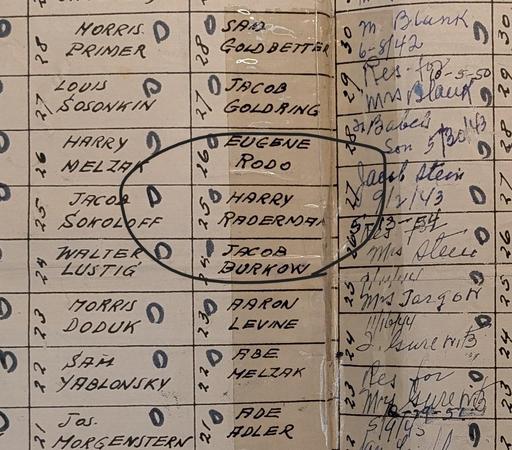 28 MORRIS PRIMER
28 SAM GOLDBETTER
30 M. Blank
6-8/42
27 LOUIS SOSONKIN
27 JACOB GOLDRING
29 Res. for 6-5-50
Mrs Blank
26 HARRY MELZAK
26 EUGENE RODO
28 Babes
Son 5/30/43
25 JACOB SOKOLOFF
25 HARRY RADERMAN
27 Jacob Stein
9/2/43
24 WALTER LUSTIG
24 JACOB BURKOW
26 5-13-54
Res
Mrs Stein
23 MORRIS DODUK
23 AARON LEVINE
25
Mrs Targow
22 SAM YABLONSKY
22 ABE MELZAK
24 11/16/44
I. Gurewitz
21 JOS. MORGENSTERN
21 ADE ADLER
23 Res for
Mrs Gurewitz
22 5/9/45